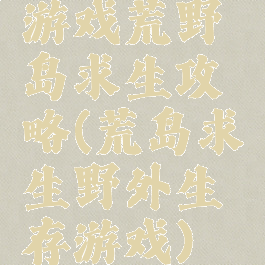 游戏荒野
岛求生攻
略(荒岛求
生野外生
存游戏)